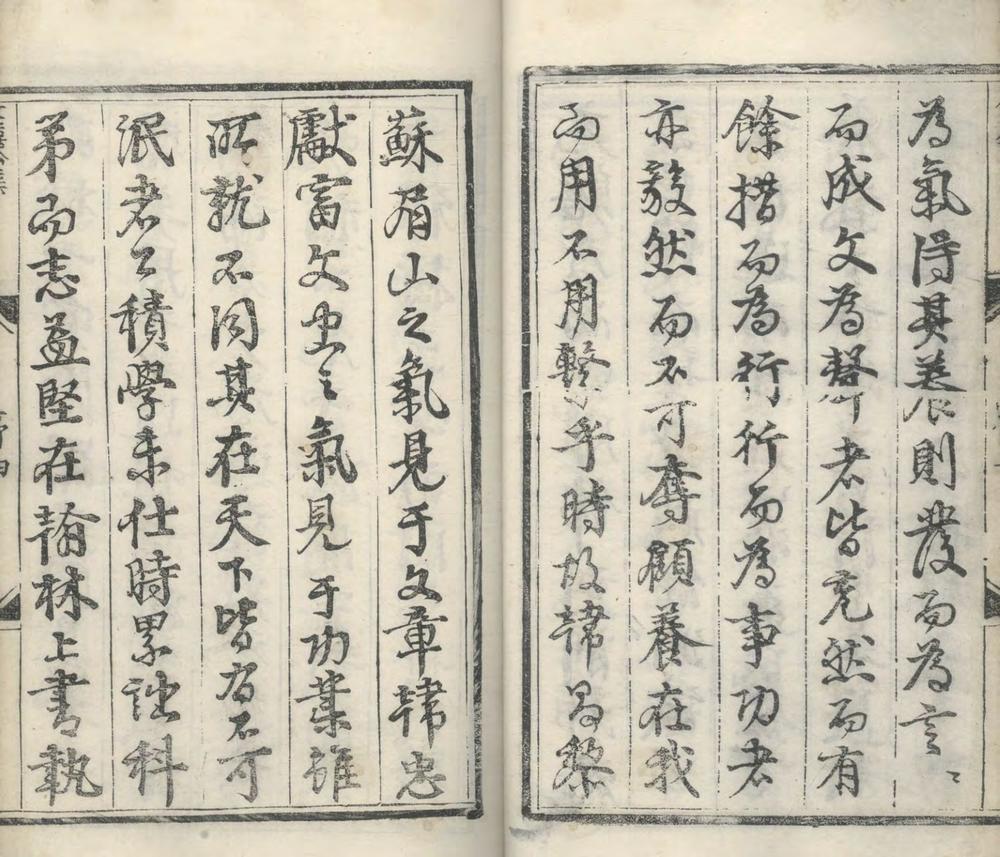 為氣得其養則發而為言〻
而成文為聲者皆充然而有
餘措而為行行而為事功者
亦毅然而不可奪顧養在我
而用不用繫乎時故韓昌黎
蘇眉山之氣見于文章韓忠
獻富文忠之氣見于功業雖
所就不同其在天下皆有不可
泯者公積學未仕時累詘科
第而志益堅在翰林上書執